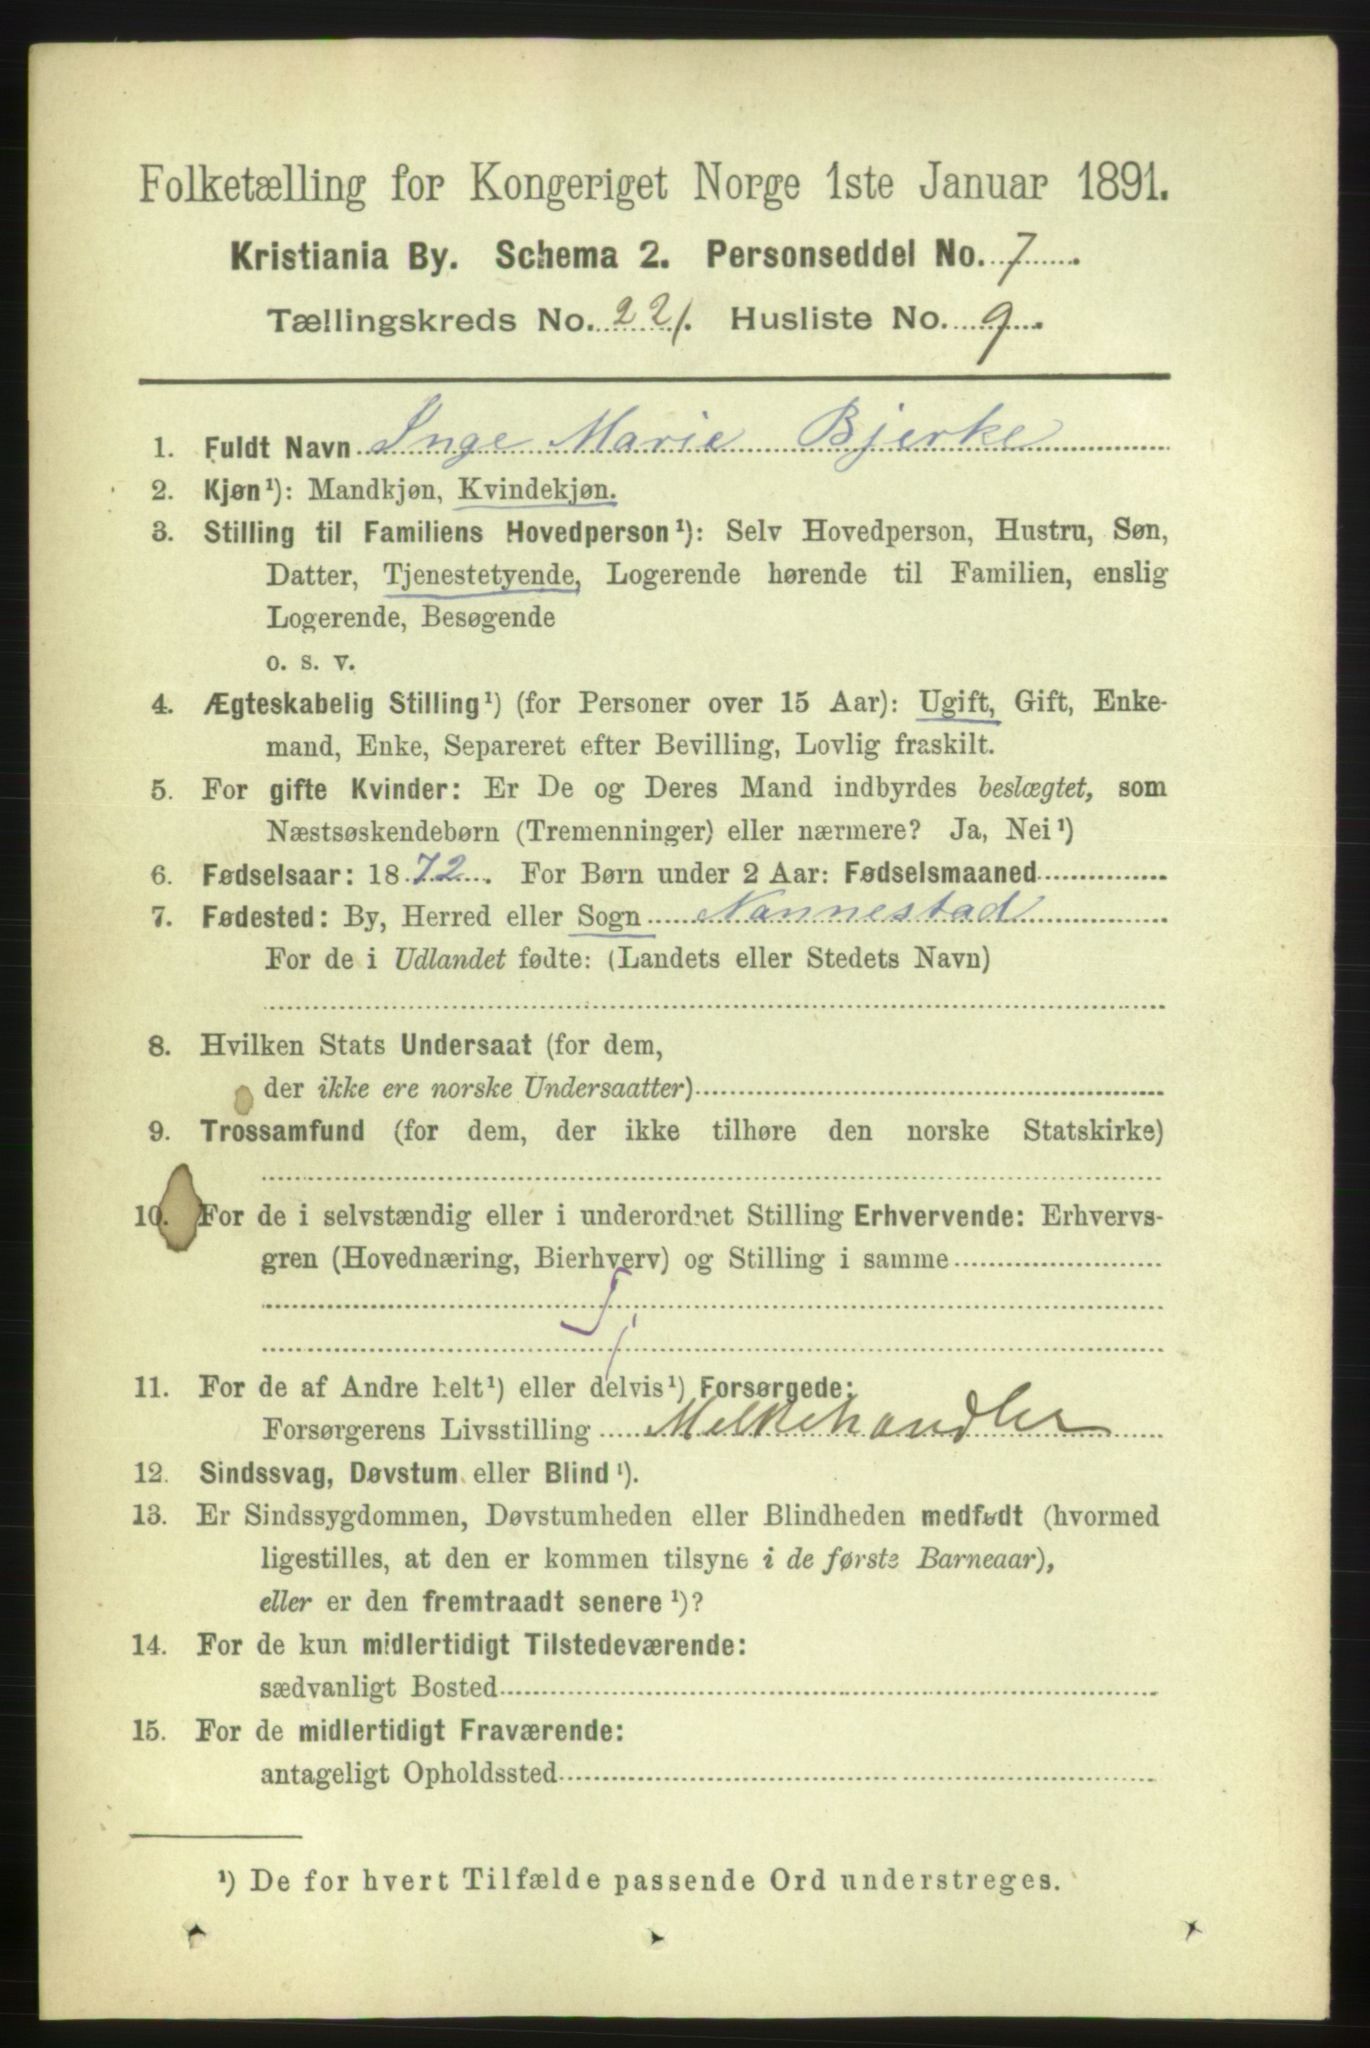 Folketælling for Kongeriget Norge 1ste Januar 1891.
Kristiania By. Schema 2. Personseddel No. 7.
Tællingskreds No. 221. Husliste No. 9.
1. Fuldt Navn Inge Marie Bjerke
2. Kjøn¹): Mandkjøn, Kvindekjøn.
3. Stilling til Familiens Hovedperson¹): Selv Hovedperson, Hustru, Søn,
Datter, Tjenestetyende, Logerende hørende til Familien, enslig
Logerende, Besøgende
o. s. v.
4. Ægteskabelig Stilling¹) (for Personer over 15 Aar): Ugift, Gift, Enke-
mand, Enke, Separeret efter Bevilling, Lovlig fraskilt.
5. For gifte Kvinder: Er De og Deres Mand indbyrdes beslægtet, som
Næstsøskendebørn (Tremenninger) eller nærmere? Ja, Nei¹)
6. Fødselsaar: 1872. For Børn under 2 Aar: Fødselsmaaned
7. Fødested: By, Herred eller Sogn Nannestad
For de i Udlandet fødte: (Landets eller Stedets Navn)
8. Hvilken Stats Undersaat (for dem,
der ikke ere norske Undersaatter)
9. Trossamfund (for dem, der ikke tilhøre den norske Statskirke)
10. For de i selvstændig eller i underordnet Stilling Erhvervende: Erhvervs-
gren (Hovednæring, Bierhverv) og Stilling i samme
11. For de af Andre helt¹) eller delvis¹) Forsørgede:
Forsørgerens Livsstilling Melkehandler
12. Sindssvag, Døvstum eller Blind¹).
13. Er Sindssygdommen, Døvstumheden eller Blindheden medfødt (hvormed
ligestilles, at den er kommen tilsyne i de første Barneaar),
eller er den fremtraadt senere¹)?
14. For de kun midlertidigt Tilstedeværende:
sædvanligt Bosted
15. For de midlertidigt Fraværende:
antageligt Opholdssted
¹) De for hvert Tilfælde passende Ord understreges.